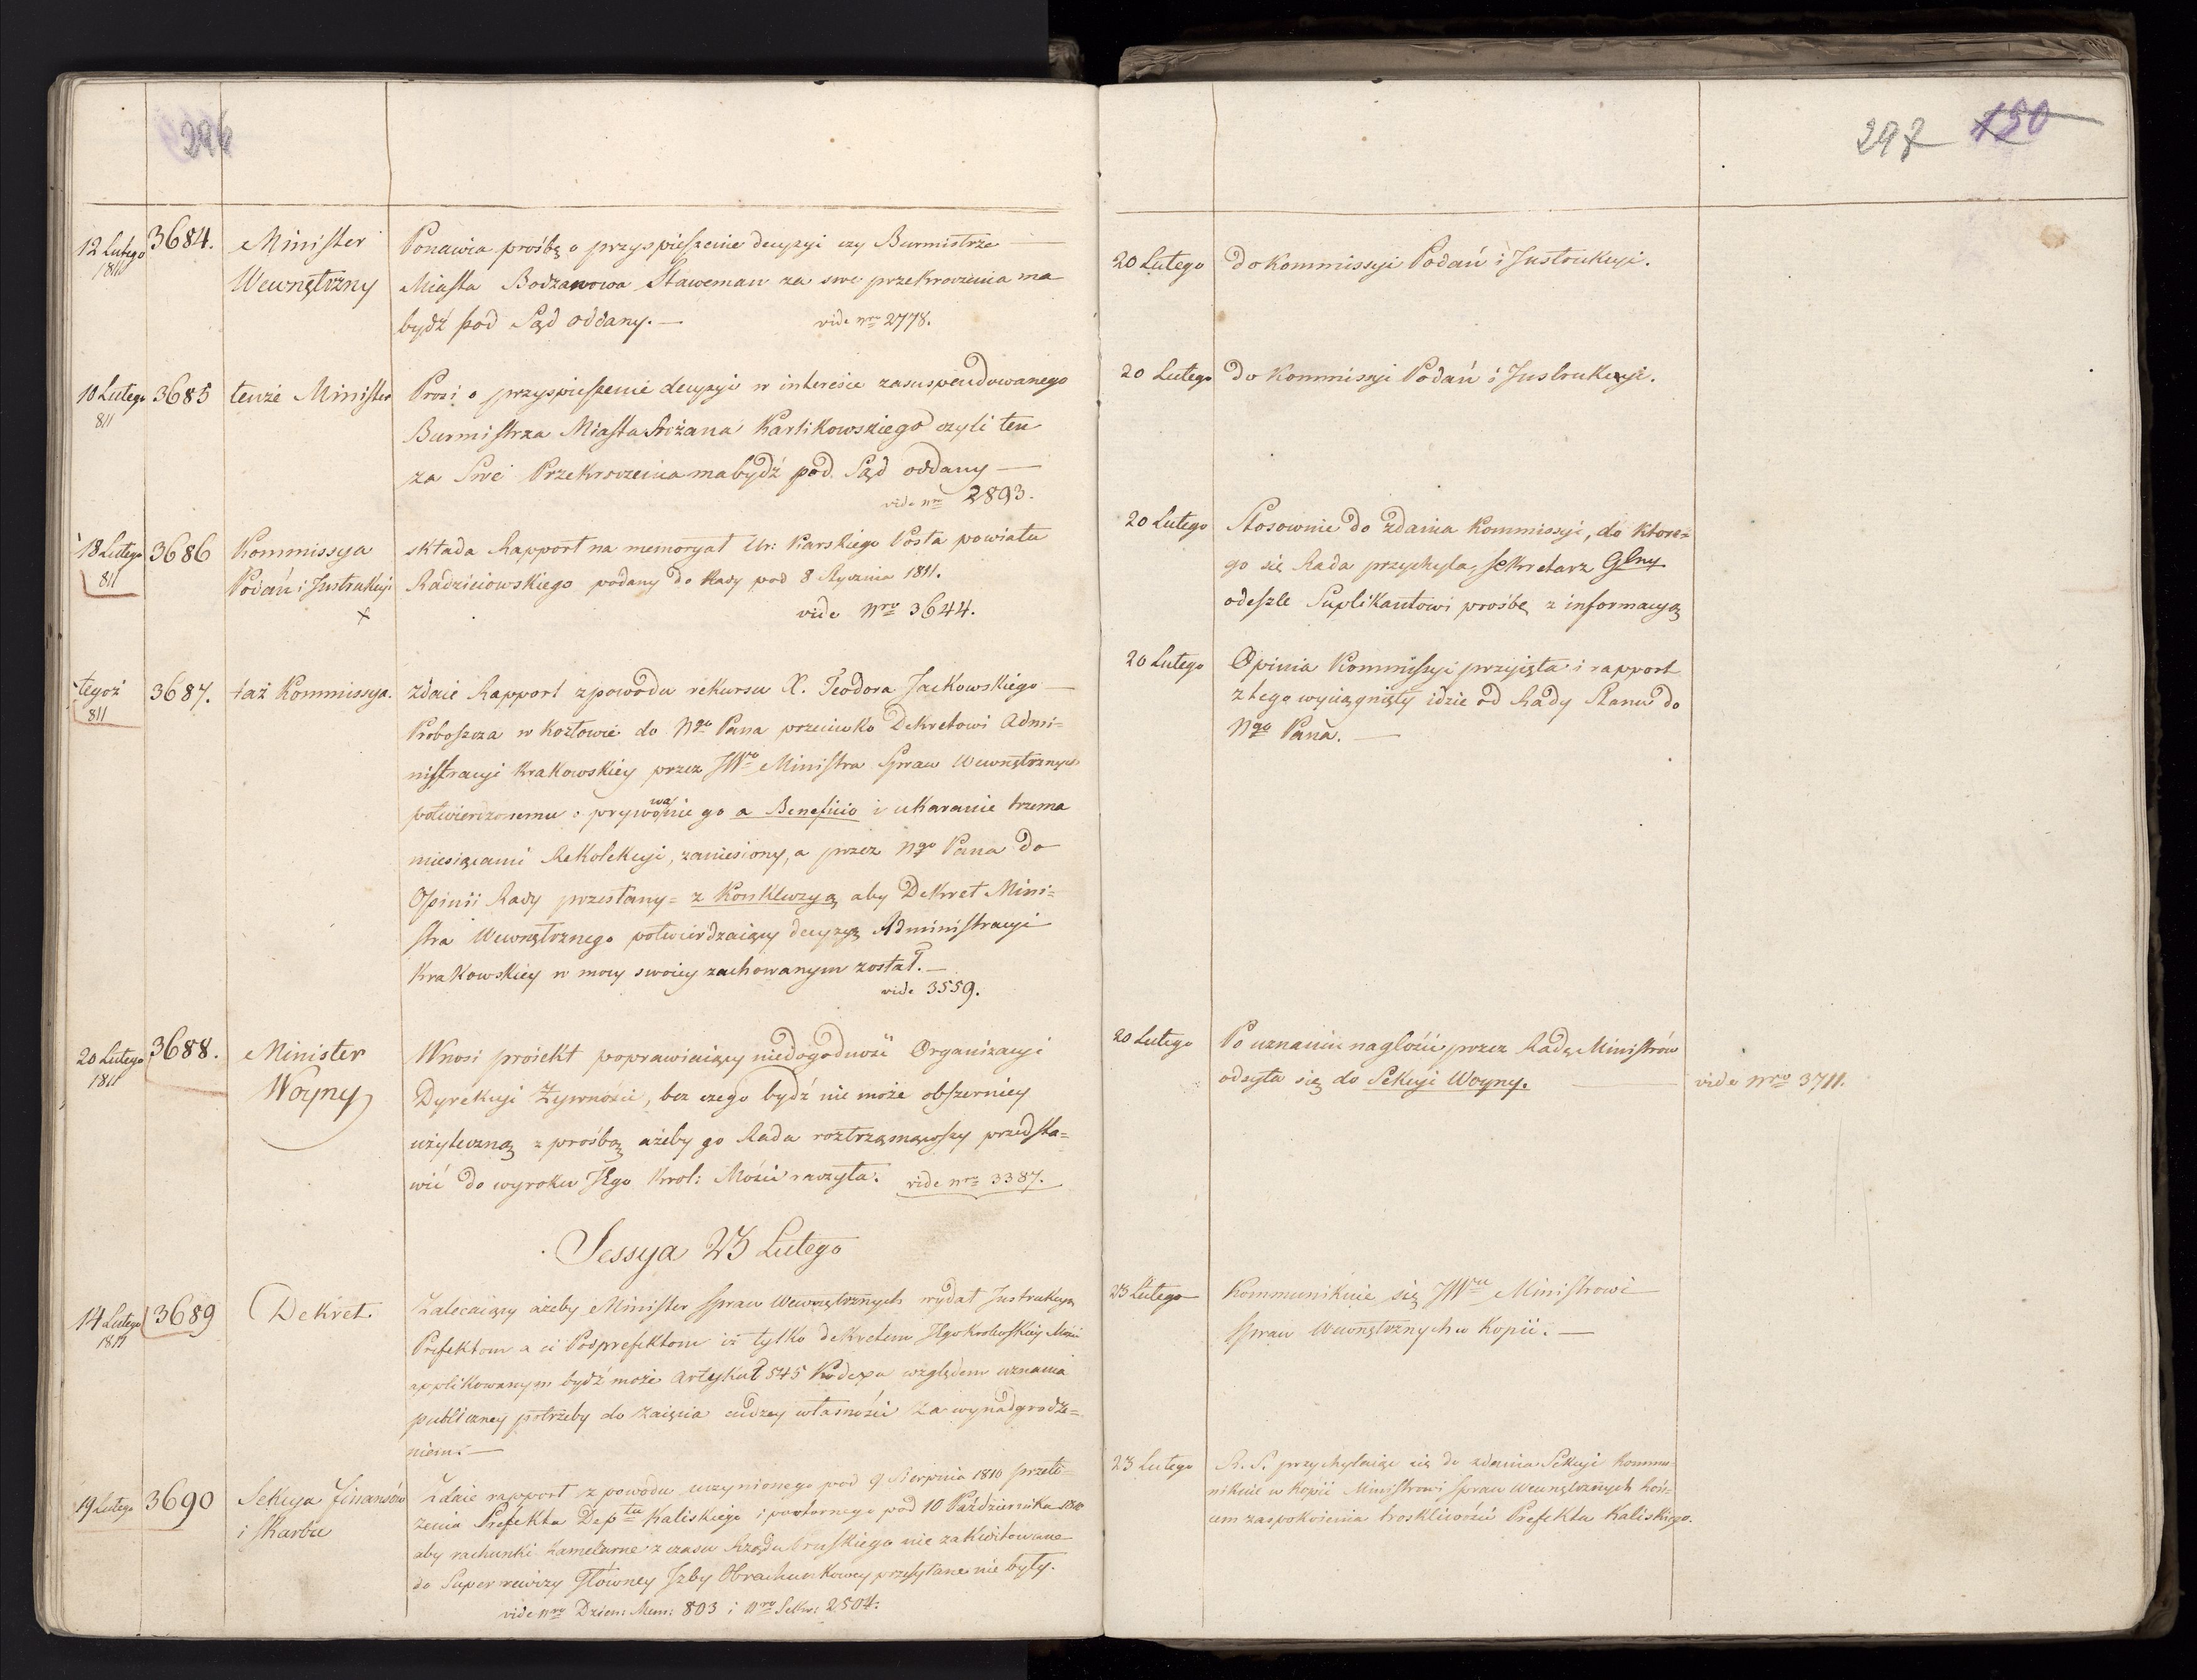 296
12 Lutego
1811
3684.
Minister
Wewnętrzny
Ponawia prośbę o przyspieszenie decyzyi czy Burmistrz
Miasta Bodzanowa Staweman za swe przekroczenia ma
bydź pod Sąd oddany.—
vide nro 2778.
10 Lutego
811
3685
tenże Minister
Prosi o przyspieszenie decyzyi w interesie zasuspendowanego
Burmistrza Miasta Rożana Karlikowskiego czyli ten
za Swe Przekroczenia ma bydź pod Sąd oddany —
vide nro 2893.
18 Lutego
811
3686
Kommissya
Podań i Instrukcyi
składa Rapport na memoryał Ur: Karskiego Posła powiatu
Radzieiowskiego podany do Rady pod 8 Stycznia 1811.
vide Nro 3644.
tegoż
811
3687.
taż Kommissya.
zdaie Rapport z powodu rekursu X. Teodora Jackowskiego —
Proboszcza w Kozłowie do Ngo Pana przeciwko Dekretowi Admi=
nistracyi Krakowskiey przez JWo Ministra Spraw Wewnętrznych
potwierdzonemu o prywowanie go a Beneficio i ukaranie trzema
miesiącami Rekolekcyi, zaniesiony, a przez Ngo Pana do
Opinii Rady przesłany= z Konkluzyą aby Dekret Mini=
stra Wewnętrznego potwierdzaiący decyzyą Administracyi
Krakowskiey w mocy swoiey zachowanym został.—
vide 3559.
20 Lutego
1811
3688.
Minister
Woyny
Wnosi proiekt poprawiaiący niedogodność Organizacyi
Dyrekcyi Żywności, bez czego bydź nie może obszerniey
użyteczną z prośbą ażeby go Rada roztrząsnąwszy przedsta=
wić do wyroku JKgo Krol: Mości raczyła. vide nro 3387.
Sessya 23 Lutego
14 Lutego
1811
3689
Dekret.
Zalecaiący ażeby Minister Spraw Wewnętrznych wydał Instrukcyą
Prefektom a ci Podprefektom iż tylko dekretem JKgo Krolewskiey Mości
applikowanym bydź może artykuł 545 Kodexu względem uznania
publiczney potrzeby do zaięcia cudzey własności za wynadgrodze=
niem.—
19 Lutego
3690
Sekcya Finansów
i Skarbu
Zdaie rapport z powodu uczynionego pod 9 Sierpnia 1810 przeło=
żenia Prefekta Deptu Kaliskiego i powtornego pod 10 Października 1810
aby rachunki kameralne z czasu Rządu Pruskiego nie zakwitowane
do Superrewizyi Główney Izby Obrachunkowey przesyłane nie były.
vide nro Dzien: Mem: 803 i Nro Sekr: 2504.
297 150
20 Lutego
do Kommissyi Podań i Instrukcyi.
20 Lutego
do Kommissyi Podań i Instrukcyi.
20 Lutego
Stosownie do zdania Kommissyi, do ktore=
go się Rada przychyla, Sekretarz Glny
odeszle Suplikantowi prośbę z informacyą
20 Lutego
Opinia Kommissyi przyięta i rapport
z tego wyciągnięty idzie od Rady Stanu do
Ngo Pana.—
20 Lutego
Po uznaniu nagłości przez Radę Ministrów
odsyła się do Sekcyi Woyny.
vide Nro 3711.
23 Lutego
Kommunikuie się JWu Ministrowi
Spraw Wewnętrznych w Kopii.—
23 Lutego
R. S. przychylaiąc się do zdania Sekcyi kommu=
nikuie w kopii Ministrowi Spraw Wewnętrznych koń=
cem zaspokoienia troskliwości Prefekta Kaliskiego.